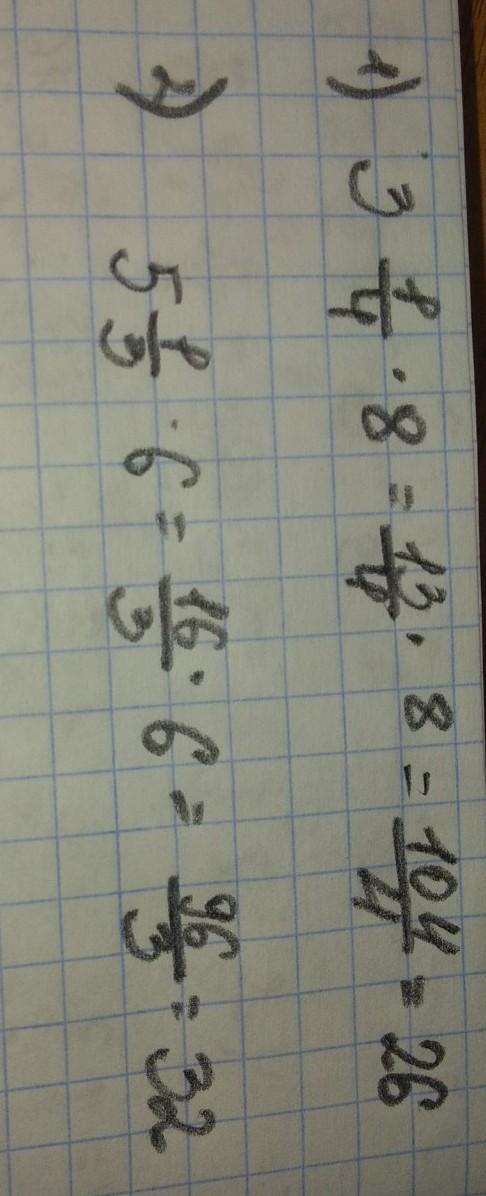 1) 3 1/4 · 8 = 13/4 · 8 = 104/4 = 26
2) 5 1/3 · 6 = 16/3 · 6 = 96/3 = 32